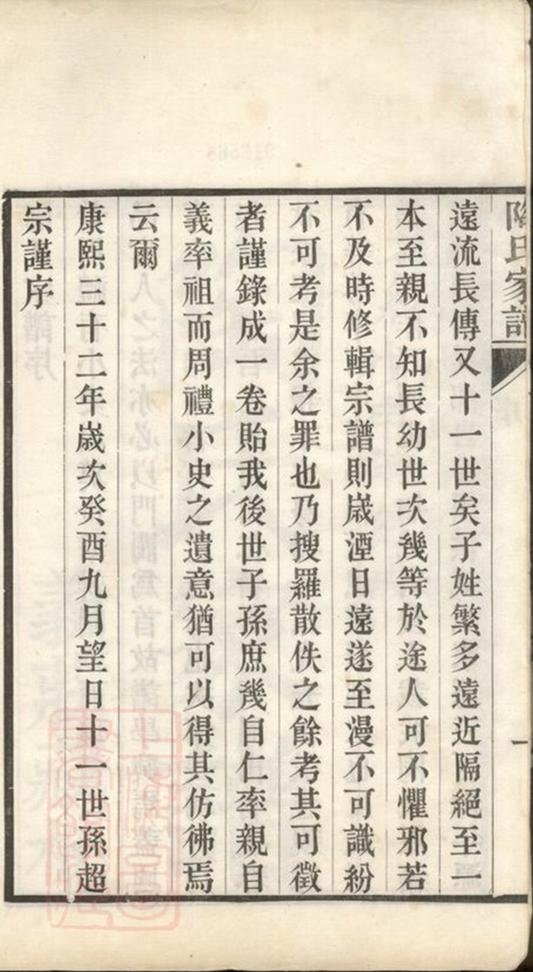 陶氏家譜
遠流長傳又十一世矣子姓繁多遠近隔絕至一
本至親不知長幼世次幾等於途人可不懼邪若
不及時修輯宗譜則歲湮日遠遂至漫不可識紛
不可考是余之罪也乃搜羅散佚之餘考其可徵
者謹錄成一卷貽我後世子孫庶幾自仁率親自
義率祖而周禮小史之遺意猶可以得其仿彿焉
云爾
康熙三十二年歲次癸酉九月望日十一世孫超
宗謹序